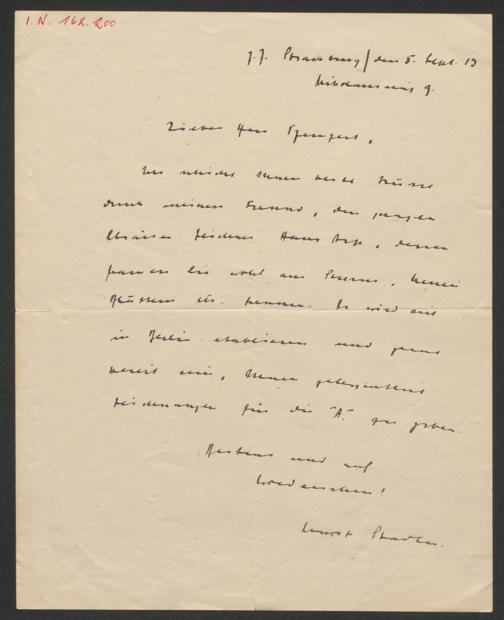 I.N. 162.200
z. Z. Strassburg / den 5. Sept. 13
Nikolausring 9.
Lieber Herr
Ich schicke Ihnen beste Grüsse
durch meinen Freund, den jungen
Elsässer Zeichner Hans Arp, dessen
Namen Sie wohl aus Sturm,
Blättern etc. kennen. Er wird sich
in Berlin etablieren und gerne
bereit sein, Ihnen gelegentlich
Zeichnungen für die "A." zu geben.
Bestens und auf
Wiedersehen!
Ernst Stadler.